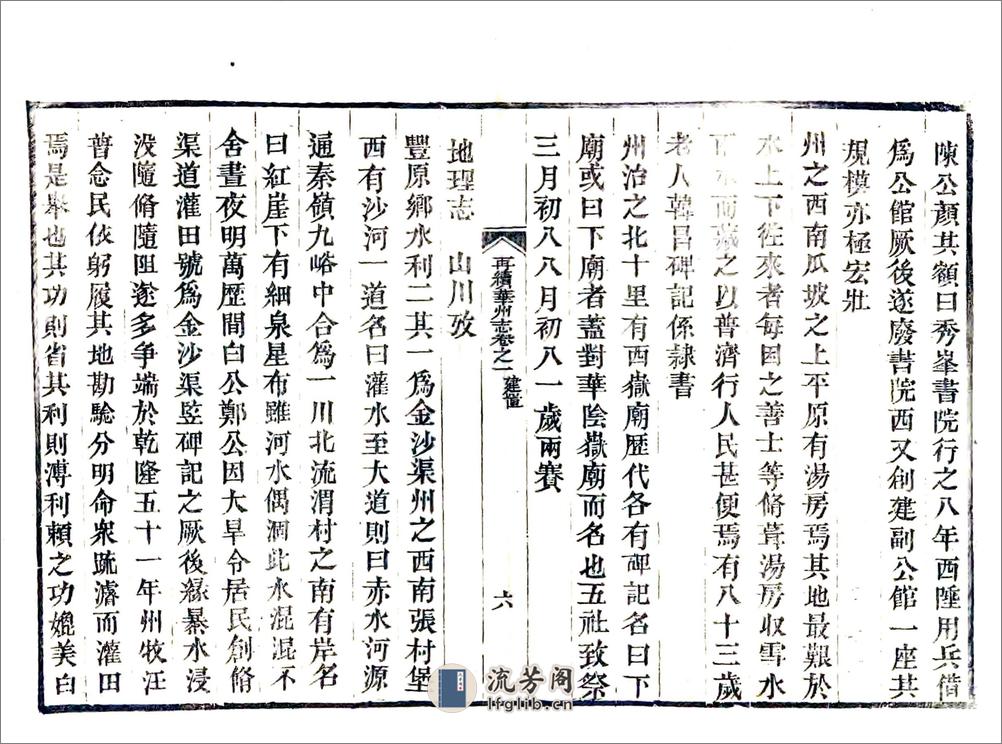 陳公顏其額曰秀峯書院行之八年西陲用兵借
爲公館厥後遂廢書院西又創建副公館一座其
規模亦極宏壯
州之西南瓜坡之上平原有湯房焉其地最艱於
水上下徃來者每困之善士等脩葺湯房収雪水
而藏之以普濟行人民甚便焉有八十三歲
老人韓昌碑記係隷書
州治之北十里有西嶽廟歷代各有碑記名曰下
廟或曰下廟者蓋對華陰嶽廟而名也五社致祭
三月初八八月初八一歲兩賽
再續華州志卷之一 建置 六
地理志 山川攷
豐原鄉水利二其一爲金沙渠州之西南張村堡
西有沙河一道名曰灌水至大道則曰赤水河源
通秦嶺九峪中合爲一川北流渭村之南有岸名
曰紅崖下有細泉星布雖河水偶涸此水混混不
舍晝夜明萬歷間白公鄭公因大旱令居民創脩
渠道灌田號爲金沙渠竪碑記之厥後緣暴水浸
没隨脩隨阻遂多争端於乾隆五十一年州牧汪
普念民依躬履其地勘驗分明命衆䟽濬而灌田
焉是舉也其功則省其利則溥利賴之功媲美白
流芳阁
lfglib.cn